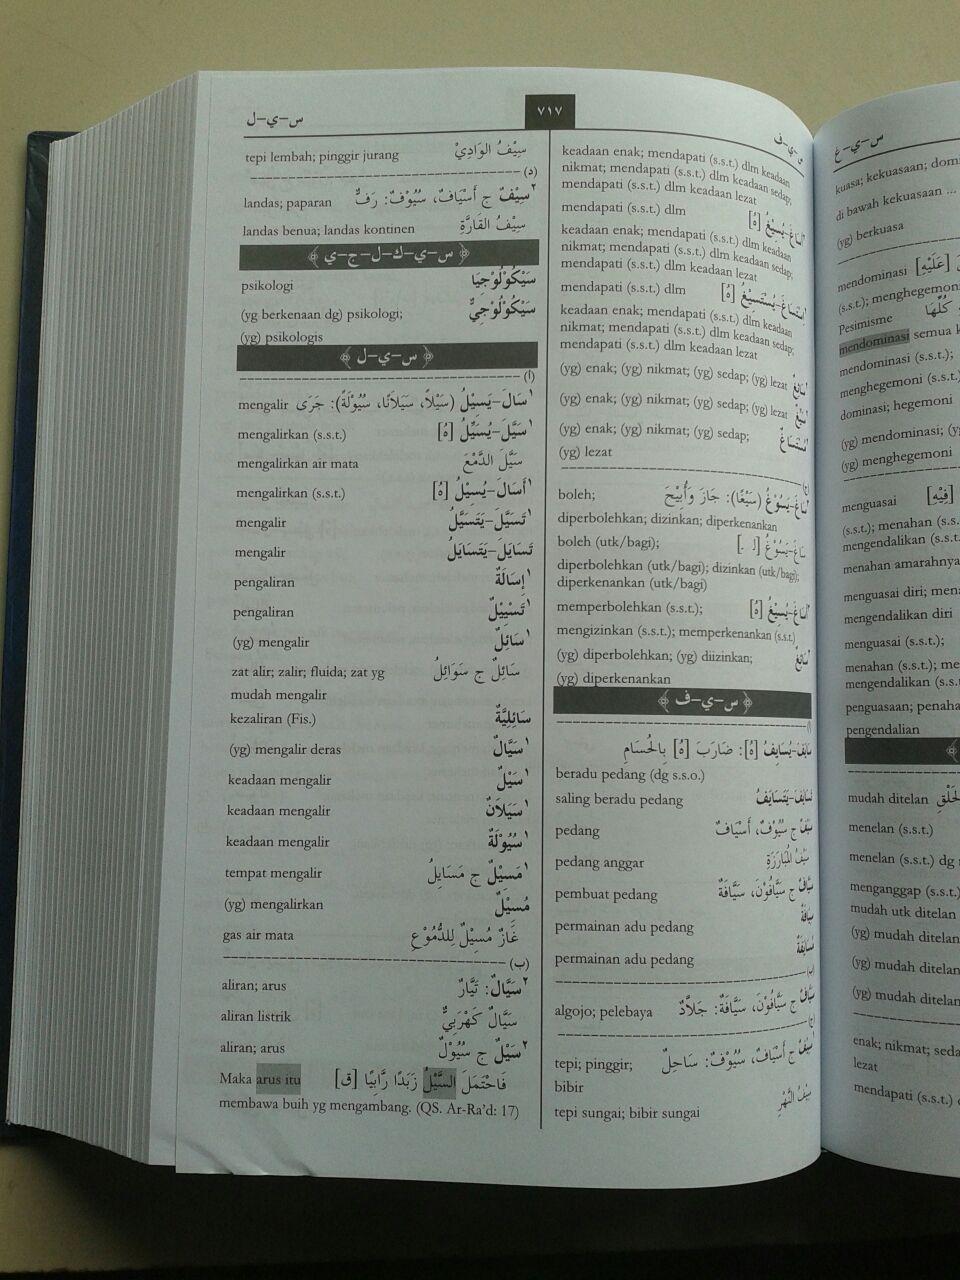 س-ي-ل
٧١٧
س-ي-ف
keadaan enak; mendapati (s.s.t.) dlm keadaan
nikmat; mendapati (s.s.t.) dlm keadaan sedap;
mendapati (s.s.t.) dlm keadaan lezat
mendapati (s.s.t.) dlm أَسَاغَ-يُسِيْغُ [هُ]
keadaan enak; mendapati (s.s.t.) dlm keadaan
nikmat; mendapati (s.s.t.) dlm keadaan sedap;
mendapati (s.s.t.) dlm keadaan lezat
mendapati (s.s.t.) dlm اِسْتَسَاغَ-يَسْتَسِيْغُ [هُ]
keadaan enak; mendapati (s.s.t.) dlm keadaan
nikmat; mendapati (s.s.t.) dlm keadaan sedap;
mendapati (s.s.t.) dlm keadaan lezat
(yg) enak; (yg) nikmat; (yg) sedap; (yg) lezat
(yg) enak; (yg) nikmat; (yg) sedap; (yg) lezat
(yg) enak; (yg) nikmat; (yg) sedap; مُسْتَسَاغٌ
(yg) lezat
(ج)
boleh; سَاغَ-يَسُوْغُ (سَيْغًا): جَازَ وَأُبِيْحَ
diperbolehkan; dizinkan; diperkenankan
boleh (utk/bagi); سَاغَ-يَسُوْغُ [لـ ـِ]
diperbolehkan (utk/bagi); dizinkan (utk/bagi);
diperkenankan (utk/bagi)
memperbolehkan (s.s.t.); أَسَاغَ-يُسِيْغُ [هُ]
mengizinkan (s.s.t.); memperkenankan (s.s.t.)
(yg) diperbolehkan; (yg) diizinkan; سَائِغٌ
(yg) diperkenankan
س-ي-ف
(أ)
سَايَفَ-يُسَايِفُ [هُ]: ضَارَبَ [هُ] بِالْحُسَامِ
beradu pedang (dg s.s.o.)
saling beradu pedang تَسَايَفَ-يَتَسَايَفُ
pedang سَيْفٌ ج سُيُوْفٌ، أَسْيَافٌ
pedang anggar سَيْفُ الْمُبَارَزَةِ
pembuat pedang سَيَّافٌ ج سَيَّافُوْنَ، سَيَّافَةٌ
permainan adu pedang
permainan adu pedang مُسَايَفَةٌ
(ب)
algojo; pelebaya سَيَّافٌ ج سَيَّافُوْنَ، سَيَّافَةٌ: جَلاَّدٌ
(ج)
tepi; pinggir; سِيْفٌ ج أَسْيَافٌ، سُيُوْفٌ: سَاحِلٌ
bibir
tepi sungai; bibir sungai سِيْفُ النَّهْرِ
tepi lembah; pinggir jurang سِيْفُ الْوَادِيْ
(د)
landas; paparan ٢سِيْفٌ ج أَسْيَافٌ، سُيُوْفٌ: رَفٌّ
landas benua; landas kontinen سِيْفُ الْقَارَّةِ
س-ي-ك-ل-ج-ي
psikologi سَيْكُوْلُوْجِيَا
(yg berkenaan dg) psikologi; سَيْكُوْلُوْجِيٌّ
(yg) psikologis
س-ي-ل
(أ)
mengalir ١سَالَ-يَسِيْلُ (سَيْلاً، سَيَلاَنًا، سُيُوْلَةً): جَرَى
mengalirkan (s.s.t.) ١سَيَّلَ-يُسَيِّلُ [هُ]
mengalirkan air mata سَيَّلَ الدَّمْعَ
mengalirkan (s.s.t.) ١أَسَالَ-يُسِيْلُ [هُ]
mengalir ١تَسَيَّلَ-يَتَسَيَّلُ
mengalir تَسَايَلَ-يَتَسَايَلُ
pengaliran ١إِسَالَةٌ
pengaliran ١تَسْيِيْلٌ
(yg) mengalir ١سَائِلٌ
zat alir; zalir; fluida; zat yg سَائِلٌ ج سَوَائِلُ
mudah mengalir
kezaliran (Fis.) سَائِلِيَّةٌ
(yg) mengalir deras ١سَيَّالٌ
keadaan mengalir ١سَيْلٌ
keadaan mengalir ١سَيَلاَنٌ
keadaan mengalir ١سُيُوْلَةٌ
tempat mengalir ١مَسِيْلٌ ج مَسَايِلُ
(yg) mengalirkan مُسِيْلٌ
gas air mata غَازٌ مُسِيْلٌ لِلدُّمُوْعِ
(ب)
aliran; arus ٢سَيَّالٌ: تَيَّارٌ
aliran listrik سَيَّالٌ كَهْرَبِيٌّ
aliran; arus ٢سَيْلٌ ج سُيُوْلٌ
Maka arus itu فَاحْتَمَلَ السَّيْلُ زَبَدًا رَّابِيًا [ق]
membawa buih yg mengambang. (QS. Ar-Ra'd: 17)
س-ي-غ
kuasa; kekuasaan;
di bawah kekuasaan ...
(yg) berkuasa
mendominasi [عَلَيْهِ]
(s.s.t.); menghegemoni
Pesimisme كُلَّهَا
mendominasi semua
mendominasi (s.s.t.);
menghegemoni (s.s.t.)
dominasi; hegemoni
(yg) mendominasi;
(yg) menghegemoni
menguasai [فِيْهِ]
(s.s.t.); menahan (s.s.t.)
mengendalikan (s.s.t.)
menahan amarahnya
menguasai diri;
mengendalikan diri
menguasai (s.s.t.);
menahan (s.s.t.);
mengendalikan (s.s.t.)
penguasaan;
pengendalian
mudah ditelan
menelan (s.s.t.)
menelan (s.s.t.) dg
menganggap (s.s.t.)
mudah utk ditelan
(yg) mudah ditelan
(yg) mudah ditelan
(yg) mudah ditelan
enak; nikmat;
lezat
mendapati (s.s.t.)